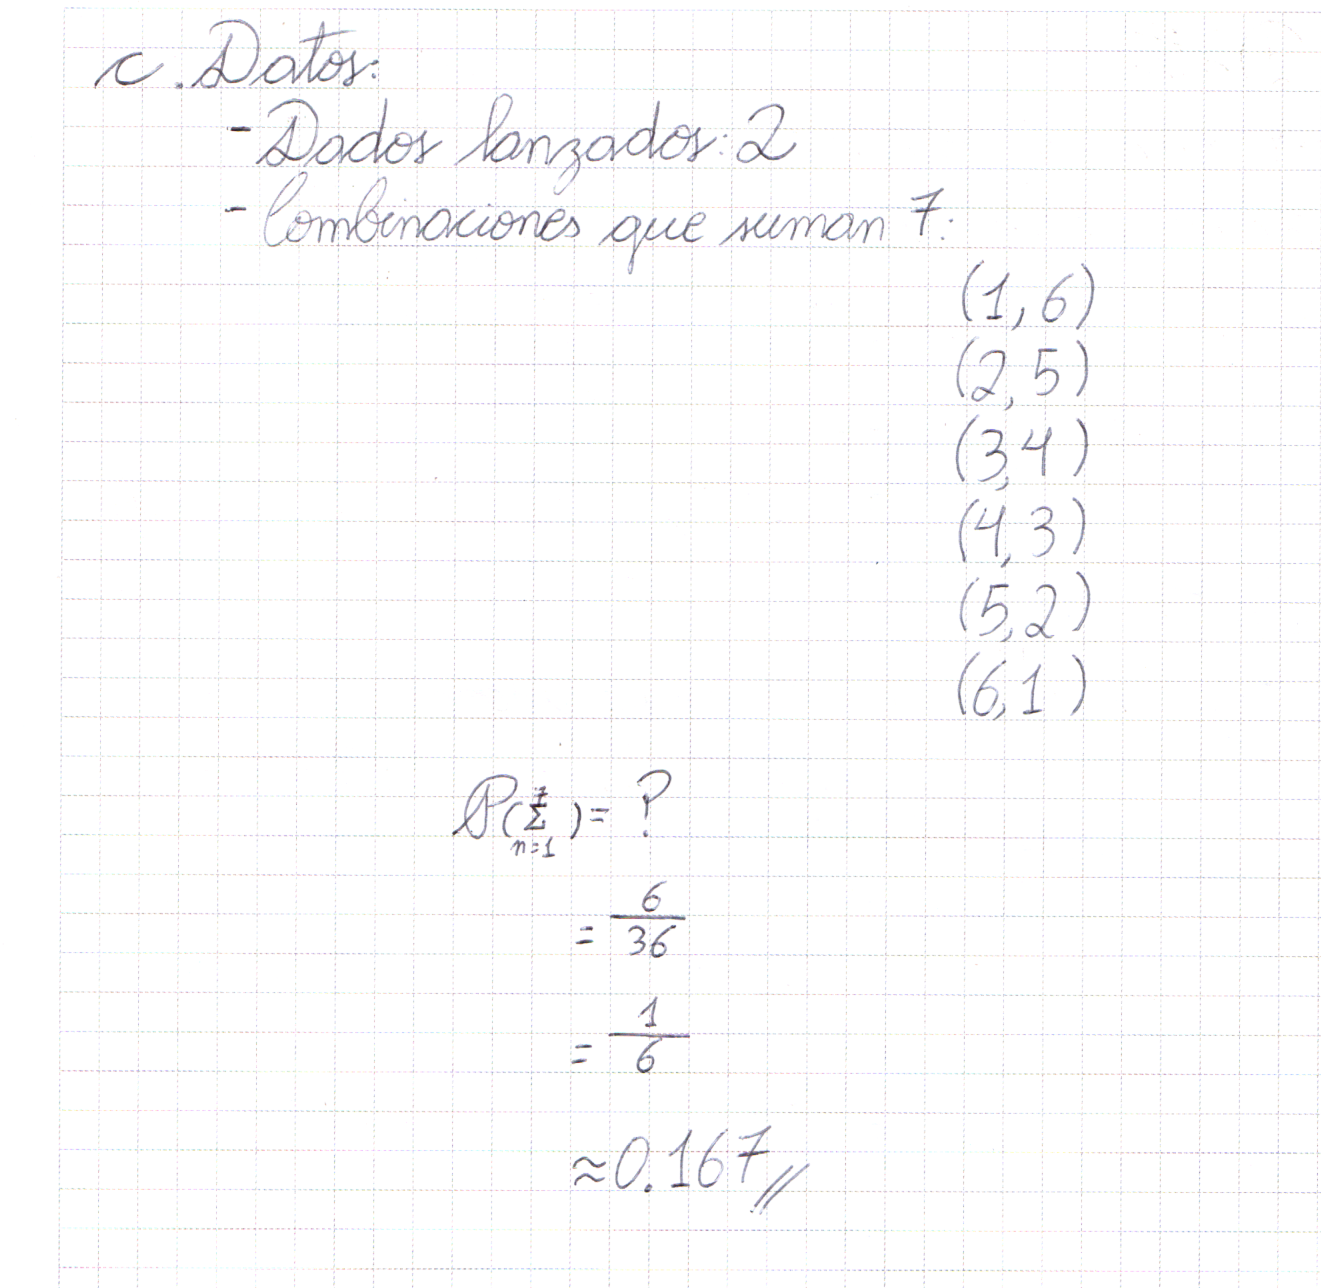 c. Datos:
- Dados lanzados: 2
- Combinaciones que suman 7:
(1, 6)
(2, 5)
(3, 4)
(4, 3)
(5, 2)
(6, 1)
P(∑_{n=1}^{7}) = ?
= 6/36
= 1/6
≈ 0.167 //